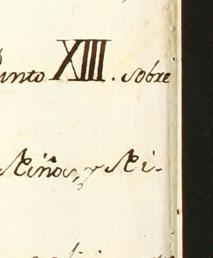 unto XIII. sobre
Niños, y Ni-